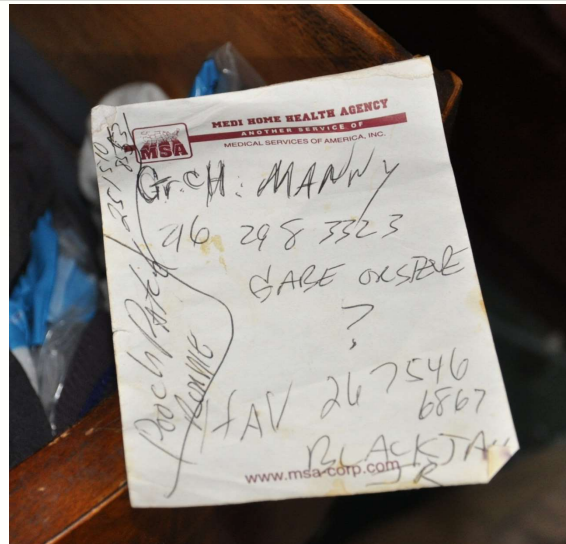 MEDI HOME HEALTH AGENCY
ANOTHER SERVICE OF
MEDICAL SERVICES OF AMERICA, INC.
MSA
Gr.CH: MANNY
216 298 3323
GABE OR
?
267546
6867
BLACKJA
JR
www.msa-corp.com
Pooch Patch
RONNIE